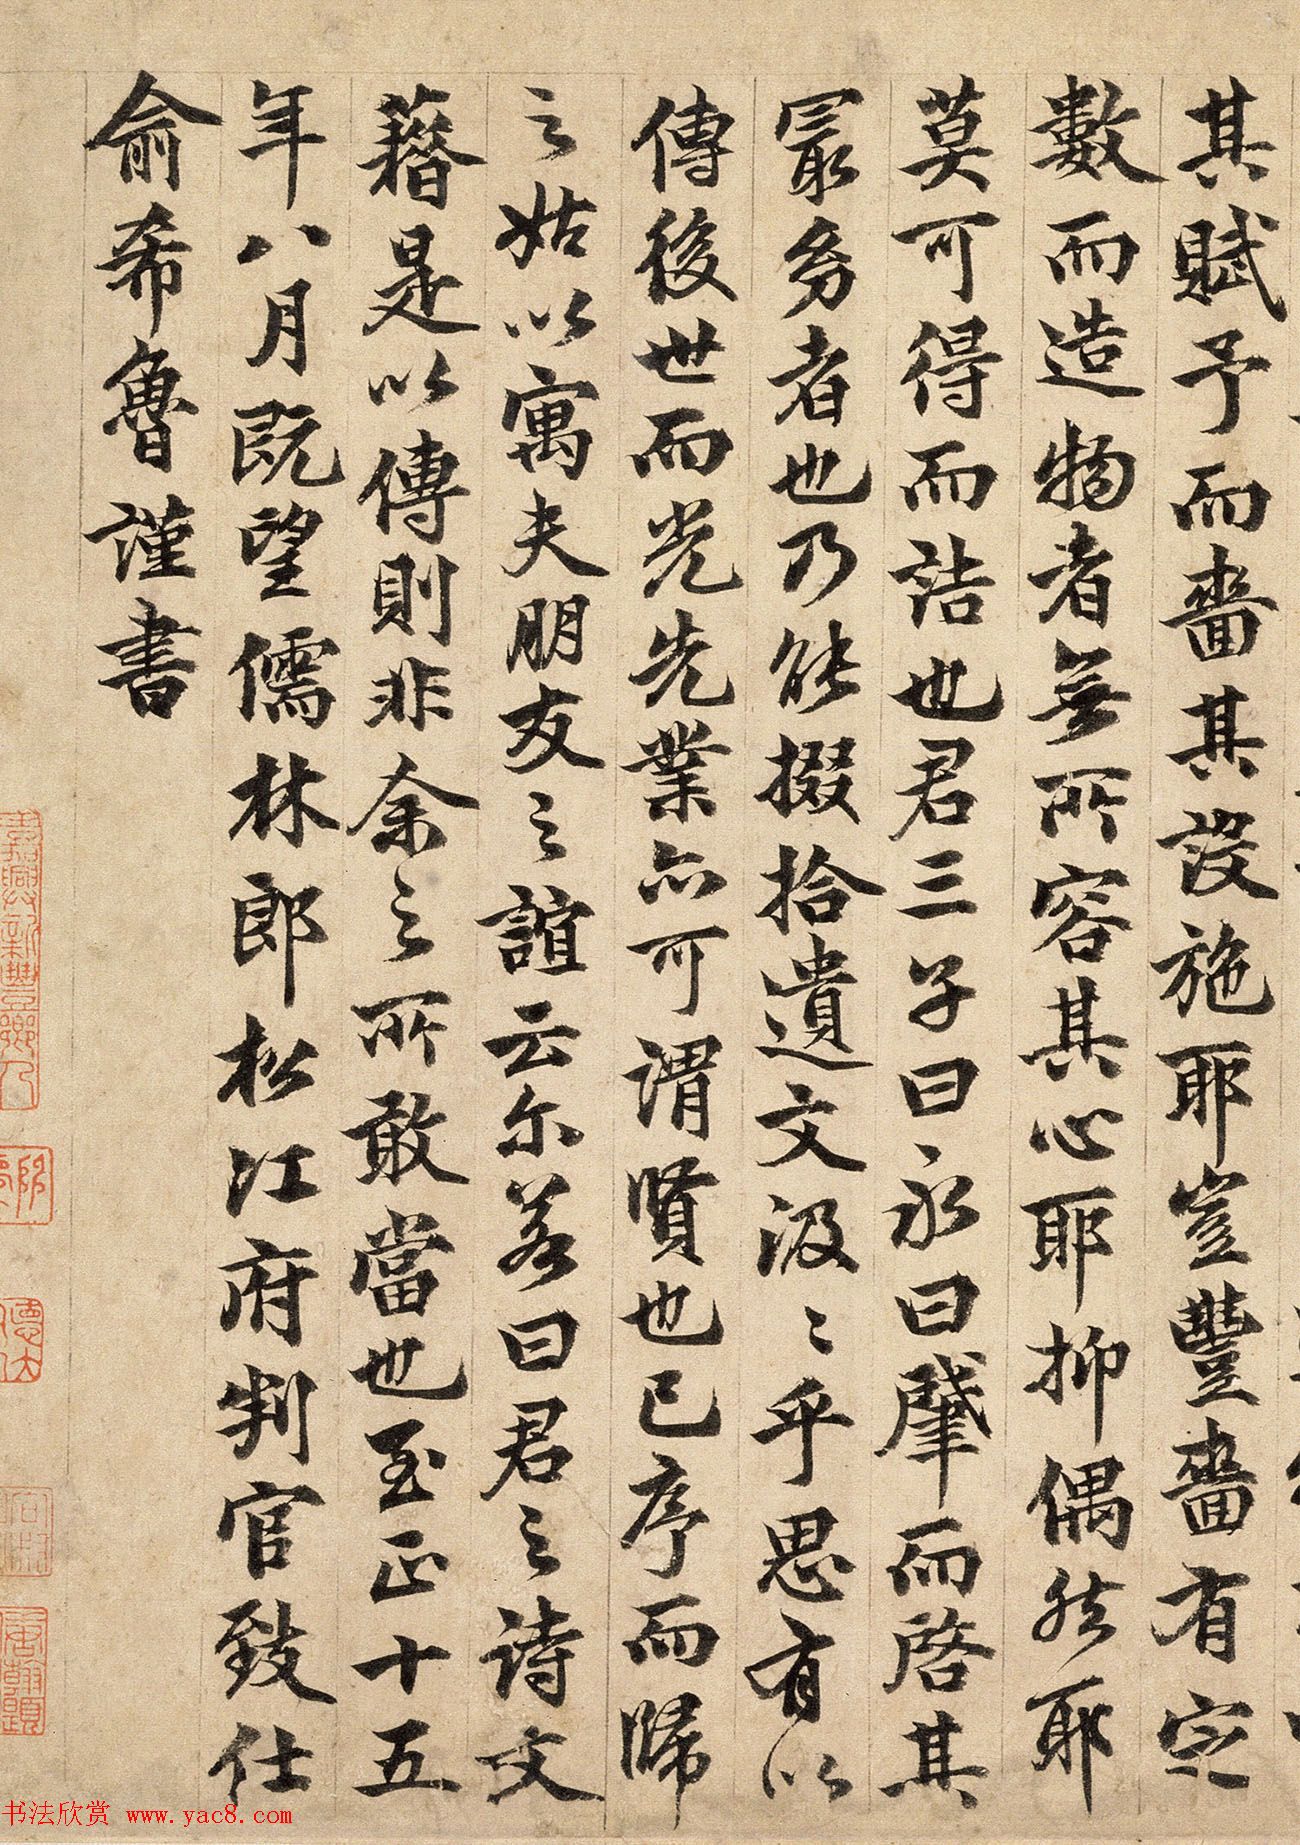 其賦予而嗇其設施耶豈豐嗇有定
數而造物者無所容其心耶抑偶然耶
莫可得而詰也君三子曰永曰肇而啓其
冣幼者也乃能掇拾遺文汲〻乎思有以
傳後世而光先業亦可謂賢也已序而歸
之姑以寓夫朋友之誼云尔若曰君之詩文
藉是以傳則非余之所敢當也至正十五
年八月既望儒林郎松江府判官致仕
俞希魯謹書
书法欣赏 www.yac8.com